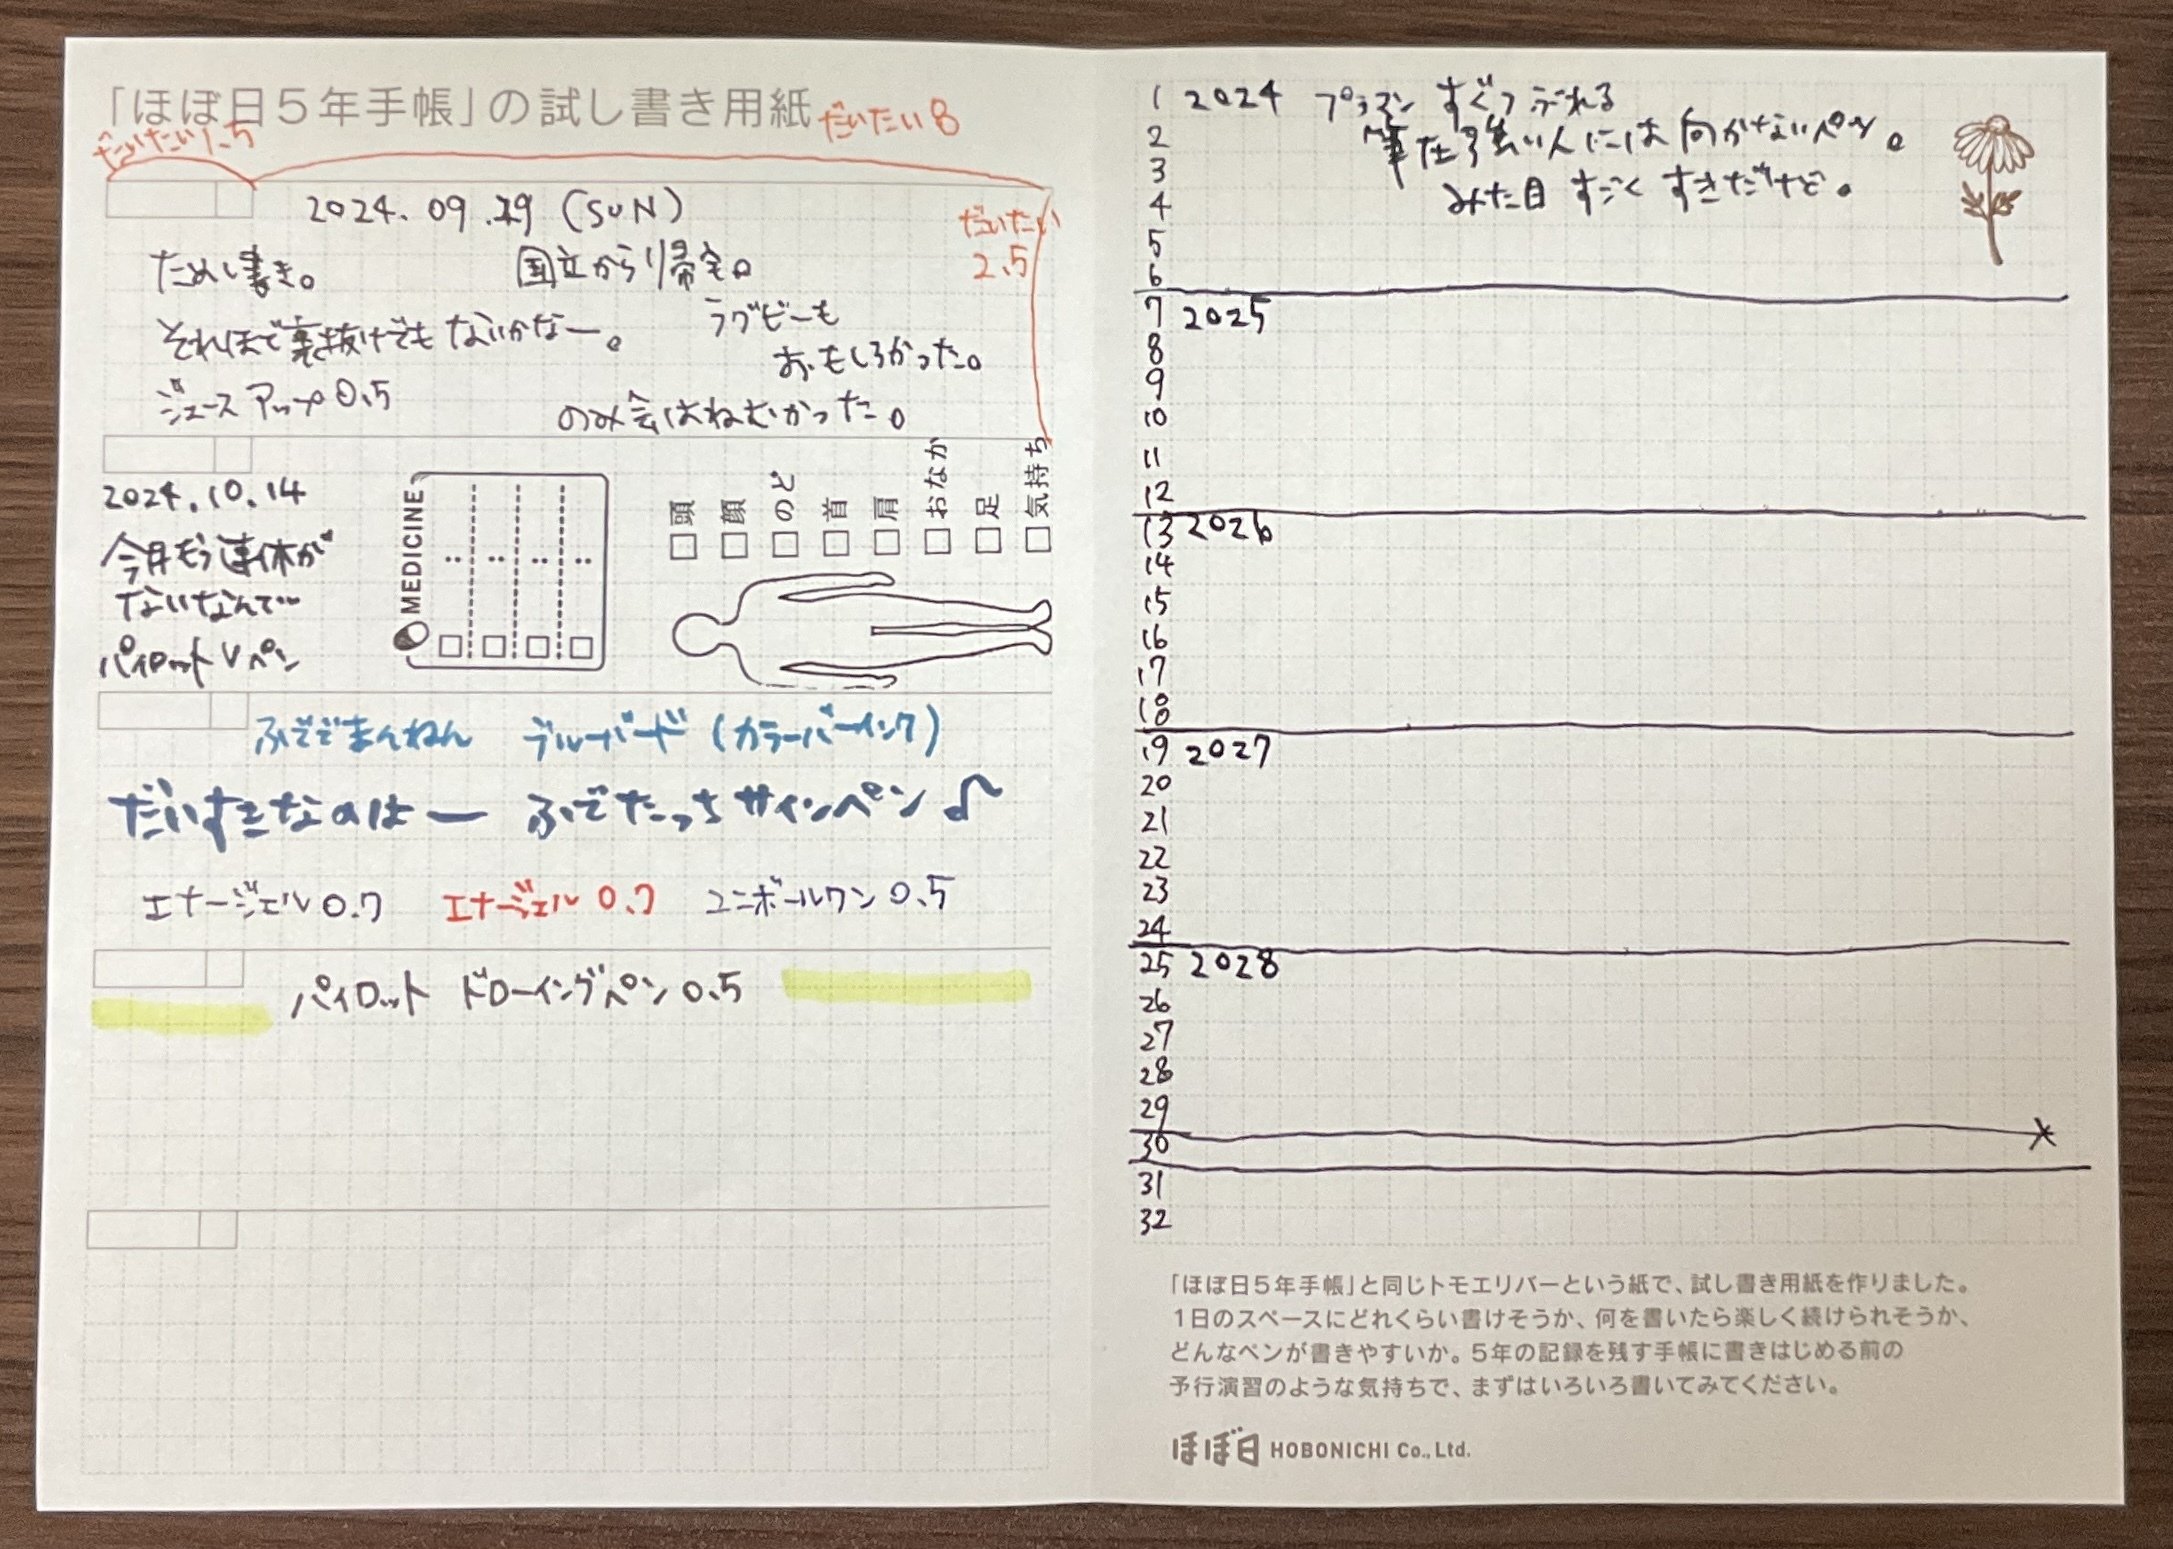 「ほぼ日5年手帳」の試し書き用紙
だいたい8
だいたい1.5
2024.09.29 (SUN)
だいたい
2.5
ためし書き。
国立から帰宅。
それほど裏抜けでもないかなー。
ラグビーも
おもしろかった。
ジュースアップ0.5
のみ会はねむかった。
2024.10.14
今月もう連休が
ないなんて…
パイロットVペン
MEDICINE
頭
顔
のど
首
肩
おなか
足
気持ち
ふででまんねん ブルーバード(カラーバーインク)
だいすきなのはー ふでたっちサインペン♪
エナージェル0.7 エナージェル0.7 ユニボールワン0.5
パイロット ドローイングペン0.5
1 2024 プラマン すぐつぶれる
2 筆圧強い人には向かないペン。
3
4 みた目すごくすきだけど。
5
6
7 2025
8
9
10
11
12
13 2026
14
15
16
17
18
19 2027
20
21
22
23
24
25 2028
26
27
28
29
30
31
32
「ほぼ日5年手帳」と同じトモエリバーという紙で、試し書き用紙を作りました。
1日のスペースにどれくらい書けそうか、何を書いたら楽しく続けられそうか、
どんなペンが書きやすいか。5年の記録を残す手帳に書きはじめる前の
予行演習のような気持ちで、まずはいろいろ書いてみてください。
ほぼ日 HOBONICHI Co., Ltd.